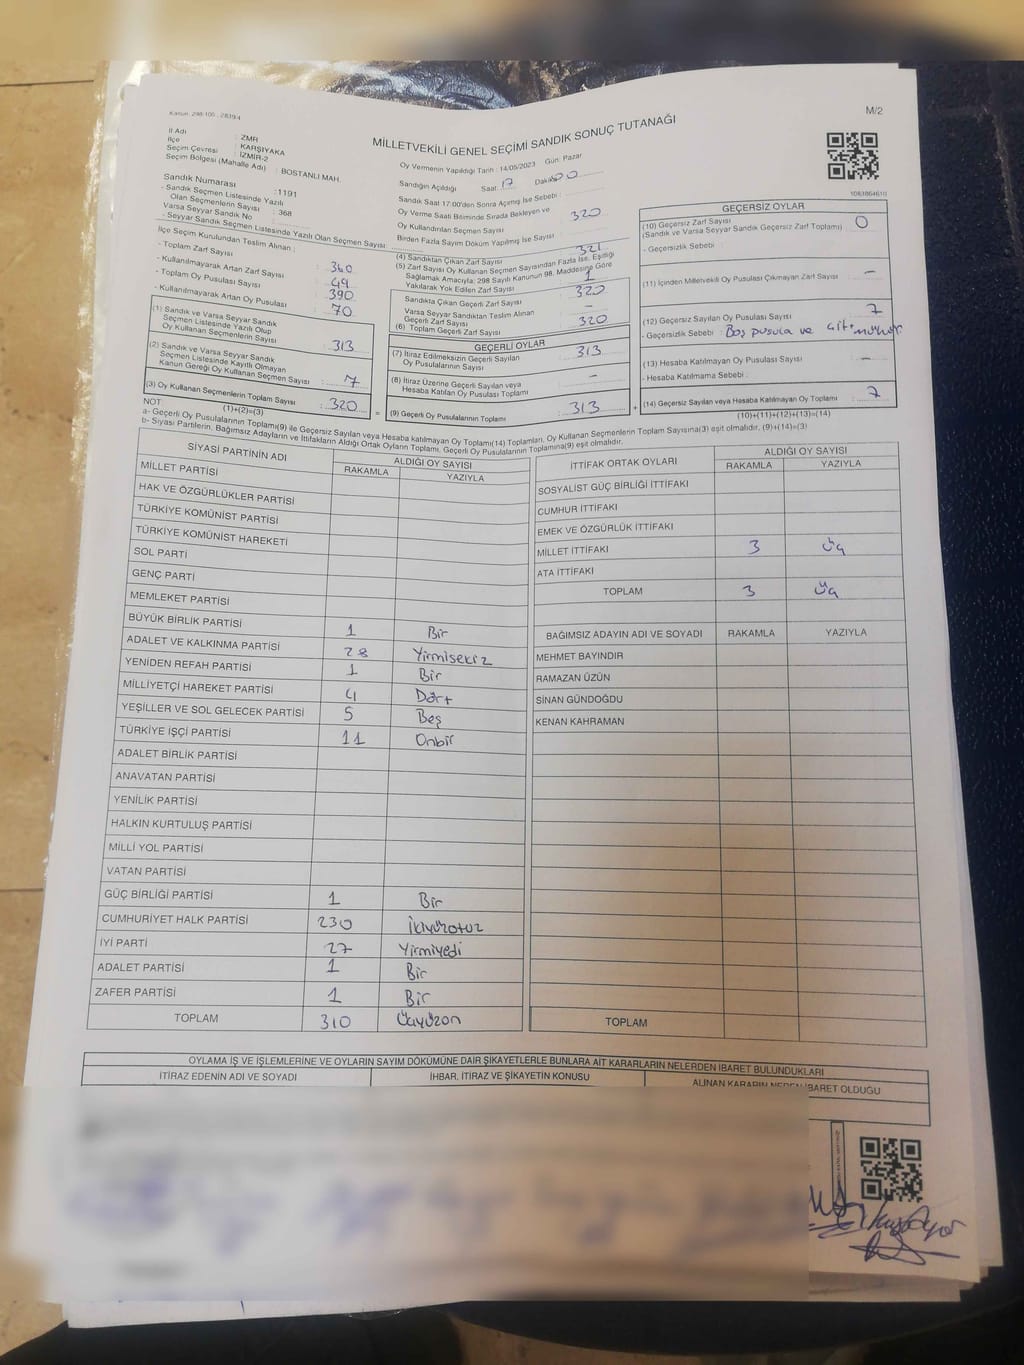 Kanun: 298/105 , 2839/4
M/2
MİLLETVEKİLİ GENEL SEÇİMİ SANDIK SONUÇ TUTANAĞI
İl Adı : İZMİR
İlçe : KARŞIYAKA
Seçim Çevresi : İZMİR-2
Seçim Bölgesi (Mahalle Adı) : BOSTANLI MAH.
Sandık Numarası :1191
- Sandık Seçmen Listesinde Yazılı
Olan Seçmenlerin Sayısı : 368
Varsa Seyyar Sandık No :
- Seyyar Sandık Seçmen Listesinde Yazılı Olan Seçmen Sayısı:
İlçe Seçim Kurulundan Teslim Alınan :
- Toplam Zarf Sayısı : 360
- Kullanılmayarak Artan Zarf Sayısı : 49
- Toplam Oy Pusulası Sayısı : 390
- Kullanılmayarak Artan Oy Pusulası : 70
(1) Sandık ve Varsa Seyyar Sandık
Seçmen Listesinde Yazılı Olup
Oy Kullanan Seçmenlerin Sayısı : 313
(2) Sandık ve Varsa Seyyar Sandık
Seçmen Listesinde Kayıtlı Olmayan
Kanun Gereği Oy Kullanan Seçmen Sayısı : 7
(3) Oy Kullanan Seçmenlerin Toplam Sayısı : 320
(1)+(2)=(3)
Oy Vermenin Yapıldığı Tarih : 14/05/2023 Gün: Pazar
Sandığın Açıldığı Saat: 17 Dakika: 00
Sandık Saat 17:00'den Sonra Açılmış İse Sebebi :
Oy Verme Saati Bitiminde Sırada Bekleyen ve
Oy Kullandırılan Seçmen Sayısı : 320
Birden Fazla Sayım Döküm Yapılmış İse Sayısı :
(4) Sandıktan Çıkan Zarf Sayısı : 321
(5) Zarf Sayısı Oy Kullanan Seçmen Sayısından Fazla İse, Eşitliği
Sağlamak Amacıyla: 298 Sayılı Kanunun 98. Maddesine Göre
Yakılarak Yok Edilen Zarf Sayısı : 1
Sandıkta Çıkan Geçerli Zarf Sayısı : 320
Varsa Seyyar Sandıktan Teslim Alınan
Geçerli Zarf Sayısı : -
(6) Toplam Geçerli Zarf Sayısı : 320
GEÇERLİ OYLAR
(7) İtiraz Edilmeksizin Geçerli Sayılan
Oy Pusulalarının Sayısı : 313
(8) İtiraz Üzerine Geçerli Sayılan veya
Hesaba Katılan Oy Pusulası Toplamı : -
= (9) Geçerli Oy Pusulalarının Toplamı : 313 +
1083864610
GEÇERSİZ OYLAR
(10) Geçersiz Zarf Sayısı : 0
(Sandık ve Varsa Seyyar Sandık Geçersiz Zarf Toplamı)
- Geçersizlik Sebebi :
(11) İçinden Milletvekili Oy Pusulası Çıkmayan Zarf Sayısı : -
(12) Geçersiz Sayılan Oy Pusulası Sayısı : 7
- Geçersizlik Sebebi : Boş pusula ve
(13) Hesaba Katılmayan Oy Pusulası Sayısı : -
- Hesaba Katılmama Sebebi :
(14) Geçersiz Sayılan veya Hesaba Katılmayan Oy Toplamı : 7
(10)+(11)+(12)+(13)=(14)
NOT:
a- Geçerli Oy Pusulalarının Toplamı(9) ile Geçersiz Sayılan veya Hesaba katılmayan Oy Toplamı(14) Toplamları, Oy Kullanan Seçmenlerin Toplam Sayısına(3) eşit olmalıdır. (9)+(14)=(3)
b- Siyasi Partilerin, Bağımsız Adayların ve İttifakların Aldığı Ortak Oyların Toplamı, Geçerli Oy Pusulalarının Toplamına(9) eşit olmalıdır.
SİYASİ PARTİNİN ADI ALDIĞI OY SAYISI
RAKAMLA YAZIYLA
MİLLET PARTİSİ
HAK VE ÖZGÜRLÜKLER PARTİSİ
TÜRKİYE KOMÜNİST PARTİSİ
TÜRKİYE KOMÜNİST HAREKETİ
SOL PARTİ
GENÇ PARTİ
MEMLEKET PARTİSİ
BÜYÜK BİRLİK PARTİSİ 1 Bir
ADALET VE KALKINMA PARTİSİ 28 Yirmisekiz
YENİDEN REFAH PARTİSİ 1 Bir
MİLLİYETÇİ HAREKET PARTİSİ 4 Dört
YEŞİLLER VE SOL GELECEK PARTİSİ 5 Beş
TÜRKİYE İŞÇİ PARTİSİ 11 Onbir
ADALET BİRLİK PARTİSİ
ANAVATAN PARTİSİ
YENİLİK PARTİSİ
HALKIN KURTULUŞ PARTİSİ
MİLLİ YOL PARTİSİ
VATAN PARTİSİ
GÜÇ BİRLİĞİ PARTİSİ 1 Bir
CUMHURİYET HALK PARTİSİ 230 İkiyüzotuz
İYİ PARTİ 27 Yirmiyedi
ADALET PARTİSİ 1 Bir
ZAFER PARTİSİ 1 Bir
TOPLAM 310 Üçyüzon
İTTİFAK ORTAK OYLARI ALDIĞI OY SAYISI
RAKAMLA YAZIYLA
SOSYALİST GÜÇ BİRLİĞİ İTTİFAKI
CUMHUR İTTİFAKI
EMEK VE ÖZGÜRLÜK İTTİFAKI
MİLLET İTTİFAKI 3 Üç
ATA İTTİFAKI
TOPLAM 3 Üç
BAĞIMSIZ ADAYIN ADI VE SOYADI RAKAMLA YAZIYLA
MEHMET BAYINDIR
RAMAZAN ÜZÜN
SİNAN GÜNDOĞDU
KENAN KAHRAMAN
TOPLAM
OYLAMA İŞ VE İŞLEMLERİNE VE OYLARIN SAYIM DÖKÜMÜNE DAİR ŞİKAYETLERLE BUNLARA AİT KARARLARIN NELERDEN İBARET BULUNDUKLARI
İTİRAZ EDENİN ADI VE SOYADI İHBAR, İTİRAZ VE ŞİKAYETİN KONUSU ALINAN KARARIN NEDEN İBARET OLDUĞU